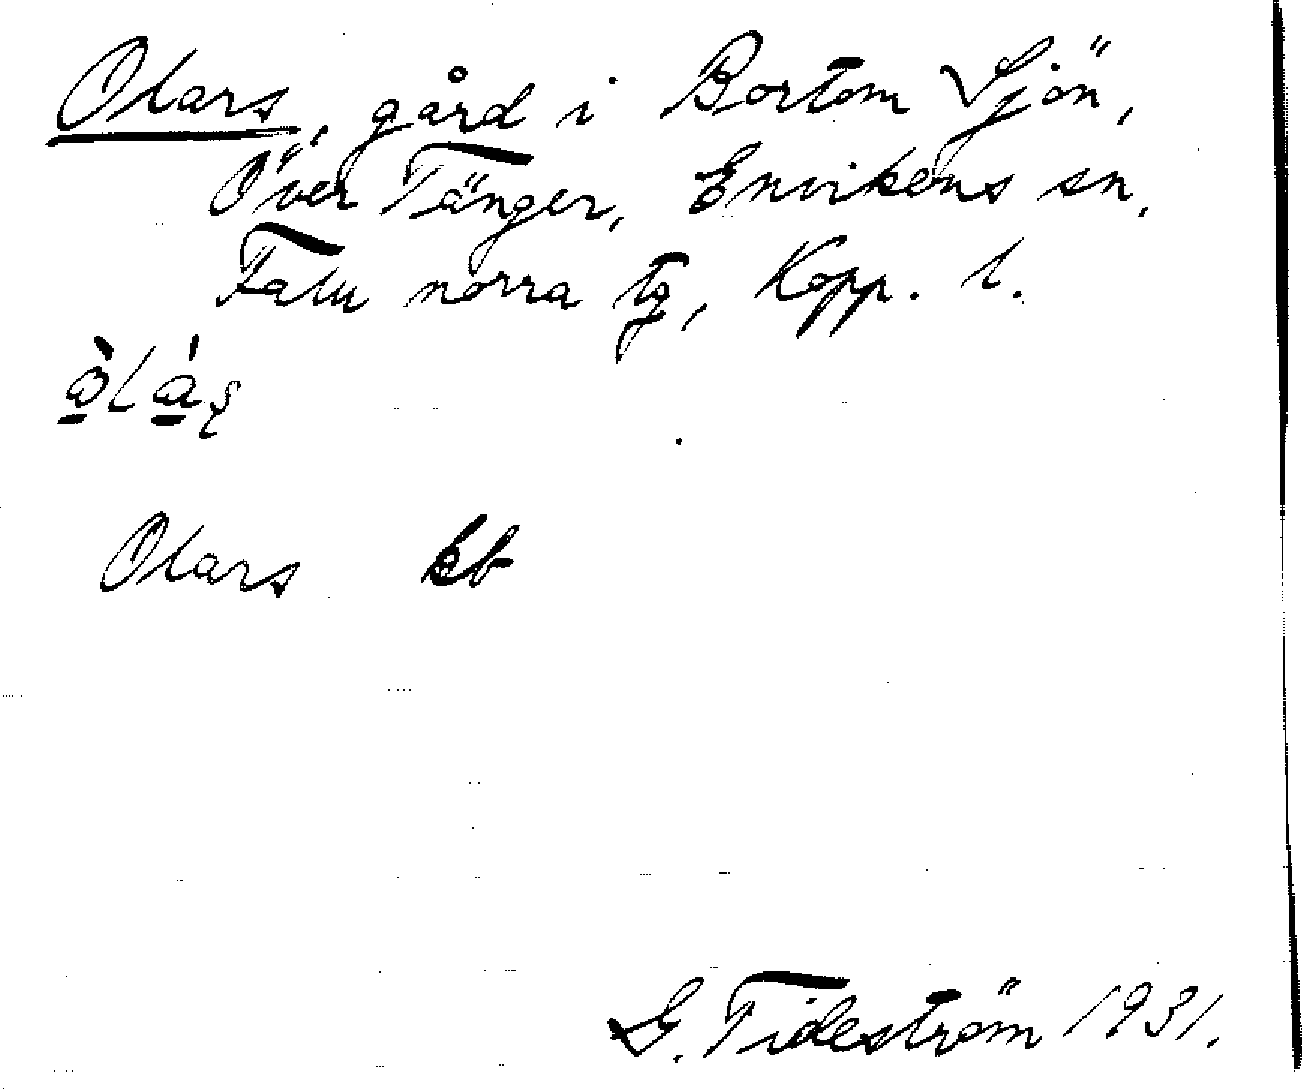 Olars, gård i Bortom Sjön,
Över Tänger, Envikens sn,
Falu norra tg, Kopp. l.
Olars kb
G. Tideström 1931.